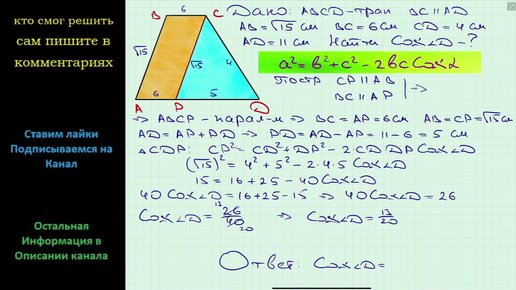 кто смог решить
сам пишите в
комментариях
Ставим лайки
Подписываемся на
Канал
Остальная
Информация в
Описании канала
B 6 C
√15 √15 4
A 6 P 5 D
Дано: ABCD-трап BC∥AD
AB=√15 см BC=6см CD=4см
AD=11см Найти Cos∠D-?
a²=b²+c²-2bc Cos∠
Постр CP∥AB
BC∥AP |⇒
⇒ ABCP-парал-м ⇒ BC=AP=6см AB=CP=√15см
AD=AP+PD ⇒ PD=AD-AP=11-6=5 см
△CDP: CP²=CD²+DP²-2·CD·DP Cos∠D
(√15)²=4²+5²-2·4·5 Cos∠D
15=16+25-40Cos∠D
40Cos∠D=16+25-15 ⇒ 40Cos∠D=26
Cos∠D=26/40 13 20 ⇒ Cos∠D=13/20
Ответ: Cos∠D=